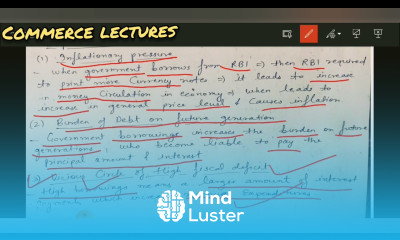 COMMERCE LECTURES
(1) Inflationary pressure
- when government borrows from RBI ⇒ then RBI required
to print more currency notes ⇒ it leads to increase
in money circulation in economy ⇒ when leads to
increase in general price level & causes inflation
(2) Burden of Debt on future generation
- Government borrowings increases the burden on future
generations, who become liable to pay the
principal amount & interest
Vicious Circle of High fiscal deficit
High borrowings means a larger amount of interest
Expenditures
Mind
Luster